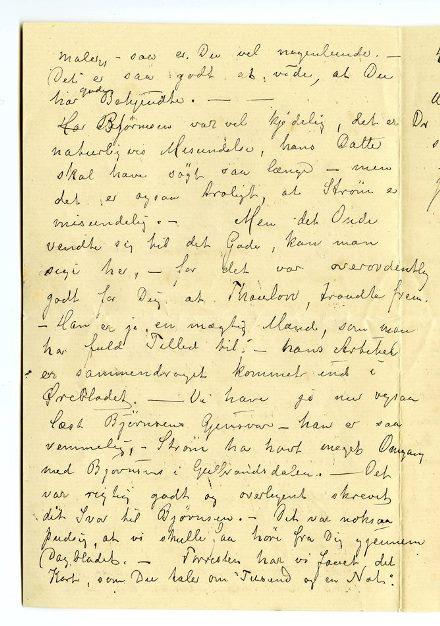 maler, – saa er Du vel nogenlunde. –
Det er saa godt at vide, at Du
har gode Bekjendte. – –
Har Bjørnson var vel kjedelig, det er
naturligvis Misundelse, hans Datter
skal have søgt saa længe – men
det er ogsaa troligt, at Strøm er
misundelig. – Men det Onde
vendte sig til det Gode, kan man
sige her, – for det var overordentlig
godt for Dig, at Thaulow, traadte frem.
– Han er jo en mægtig Mand, som man
har fuld Tillid til. – hans Artikel
er sammendraget kommet ind i
Ørebladet. – Vi have jo nu ogsaa
læst Bjørnsons Gensvar – han er saa
vemmelig, – Strøm har havt meget Omgang
med Bjørnsons i Gulbrandsdalen. – Det
var rigtig godt og overlegent skrevet
dit Svar til Bjørnson. – Det var noksaa
pudsig, at vi skulle faa høre fra Dig gjennem
Dagbladet. – Forresten har vi faaet det
Kort, som Du taler om "Tusend og en Nat".